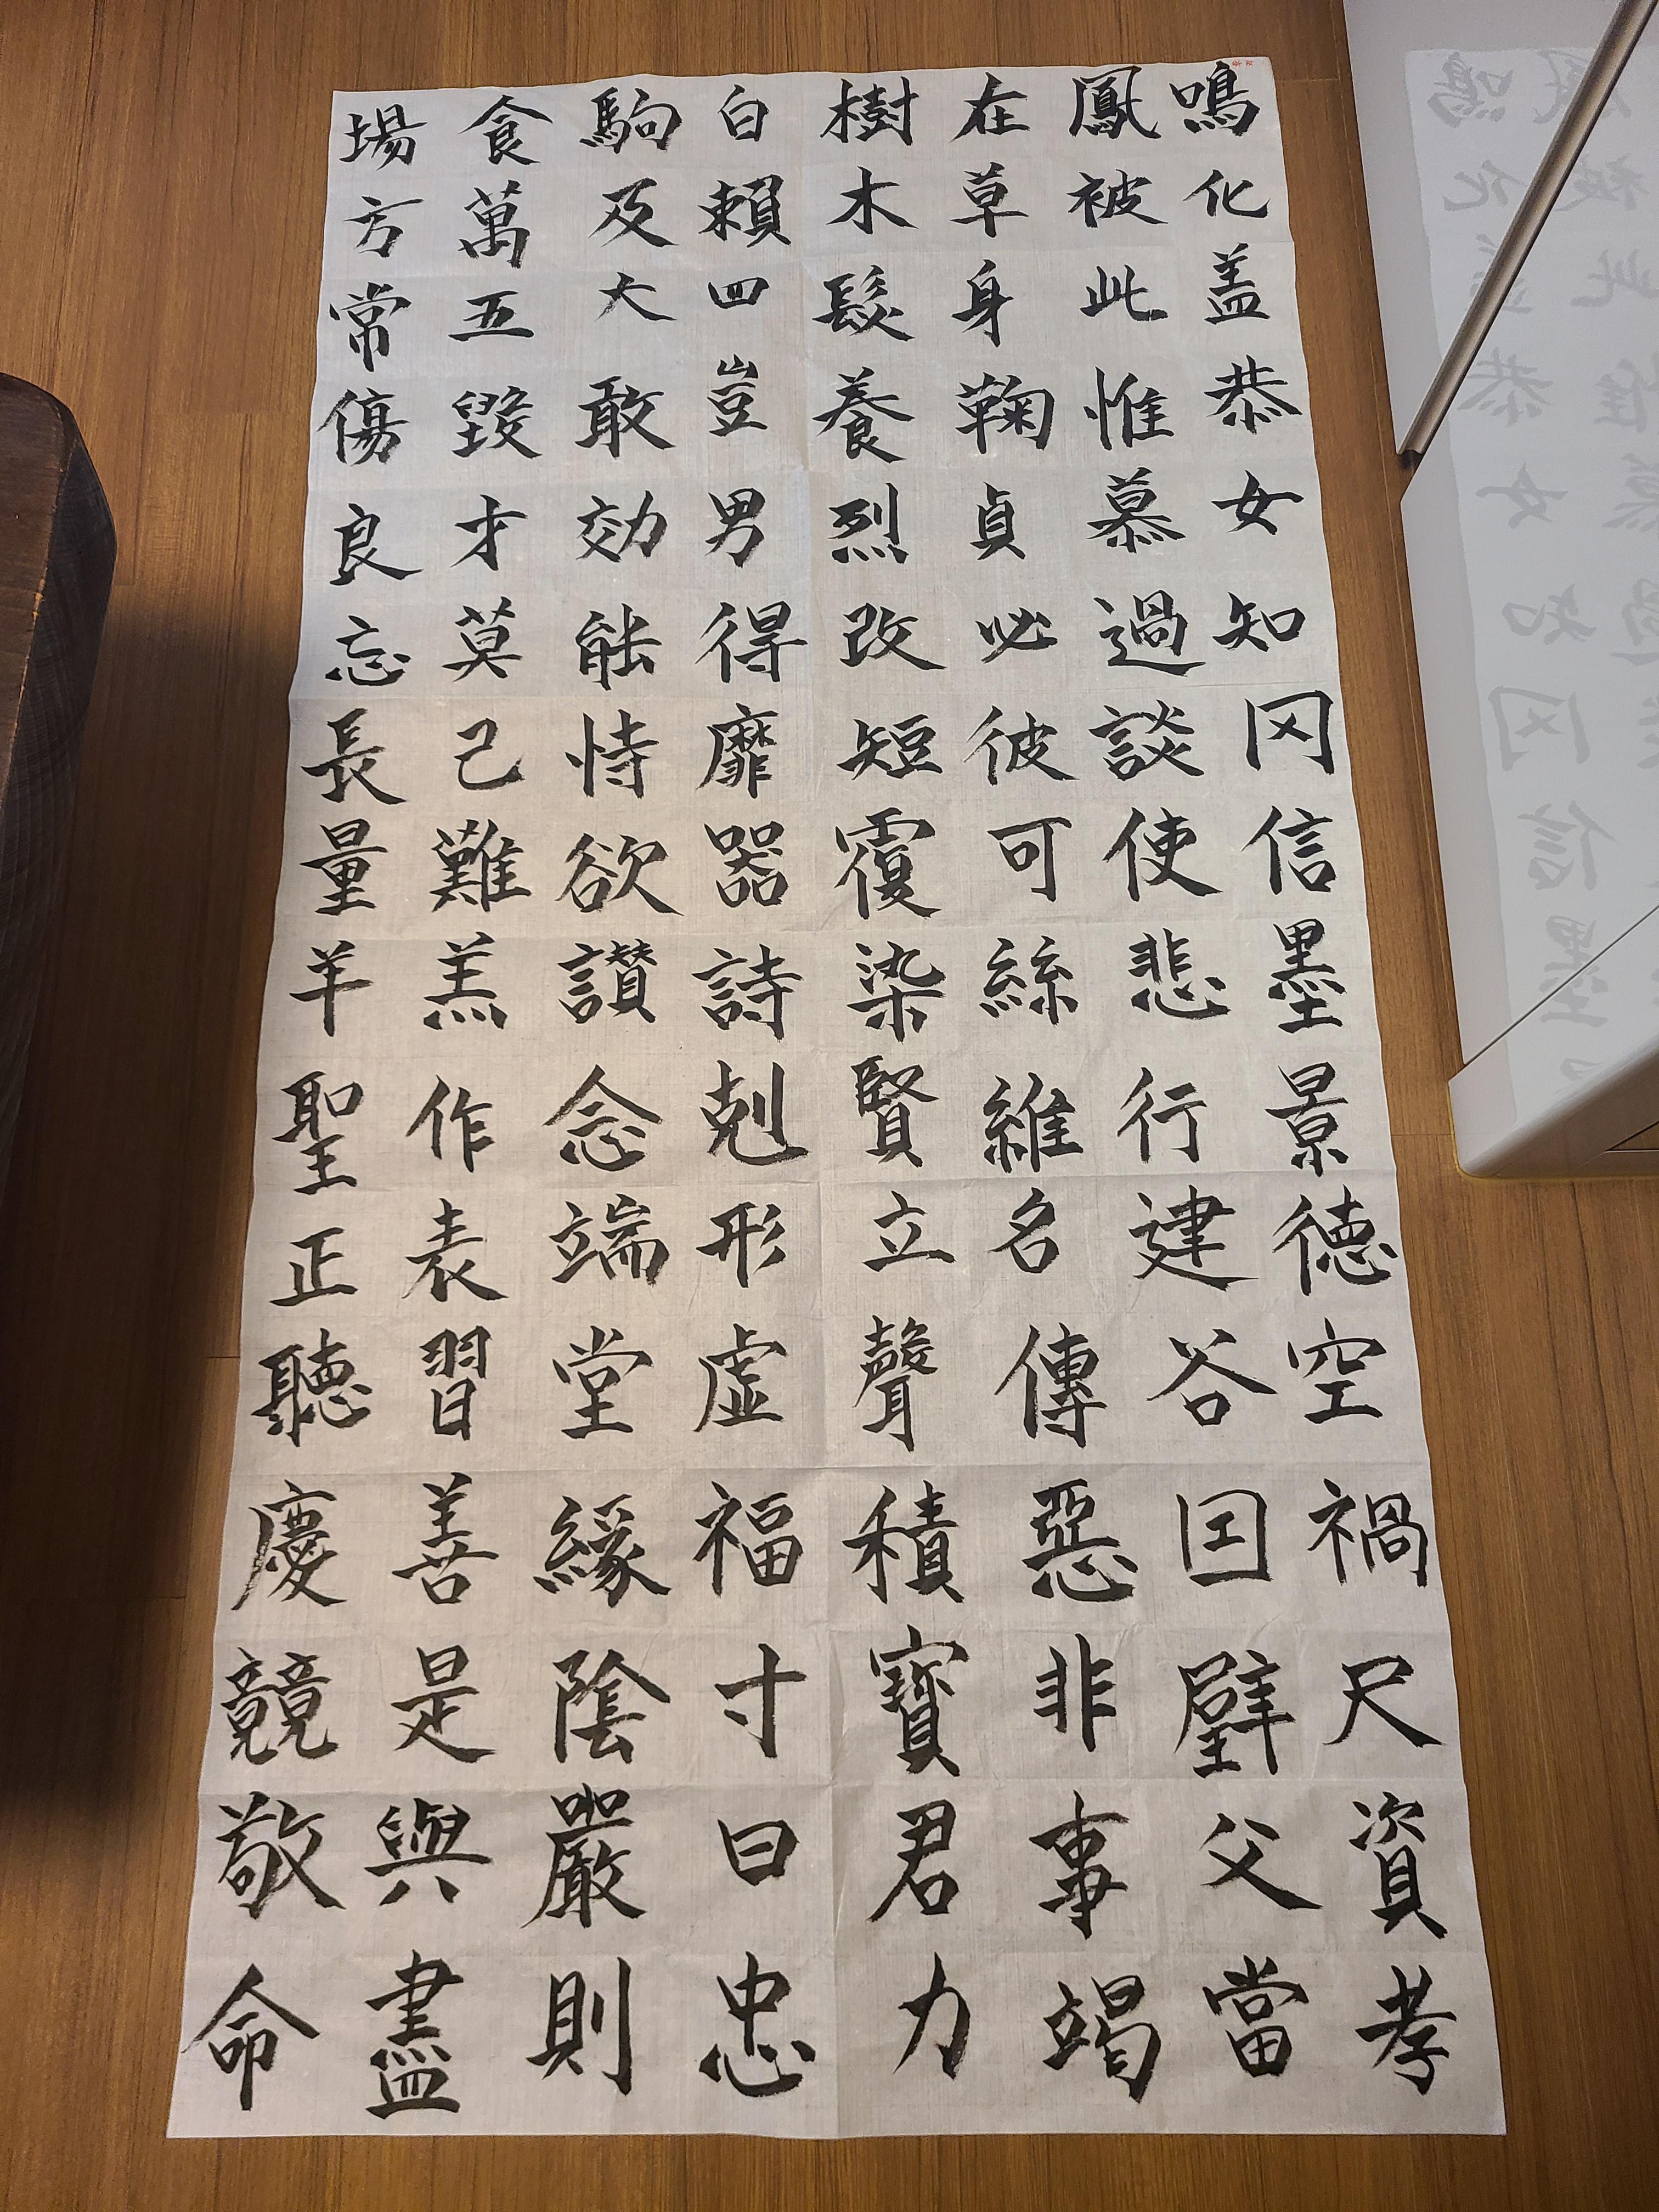 鳴鳳在樹白駒食場
化被草木賴及萬方
盖此身髮四大五常
恭惟鞠養豈敢毀傷
女慕貞烈男効才良
知過必改得能莫忘
冈談彼短靡恃己長
信使可覆器欲難量
墨悲絲染詩讃羔羊
景行維賢剋念作聖
徳建名立形端表正
空谷傳聲虚堂習聽
禍囙惡積福緣善慶
尺璧非寶寸陰是競
資父事君曰嚴與敬
孝當竭力忠則盡命